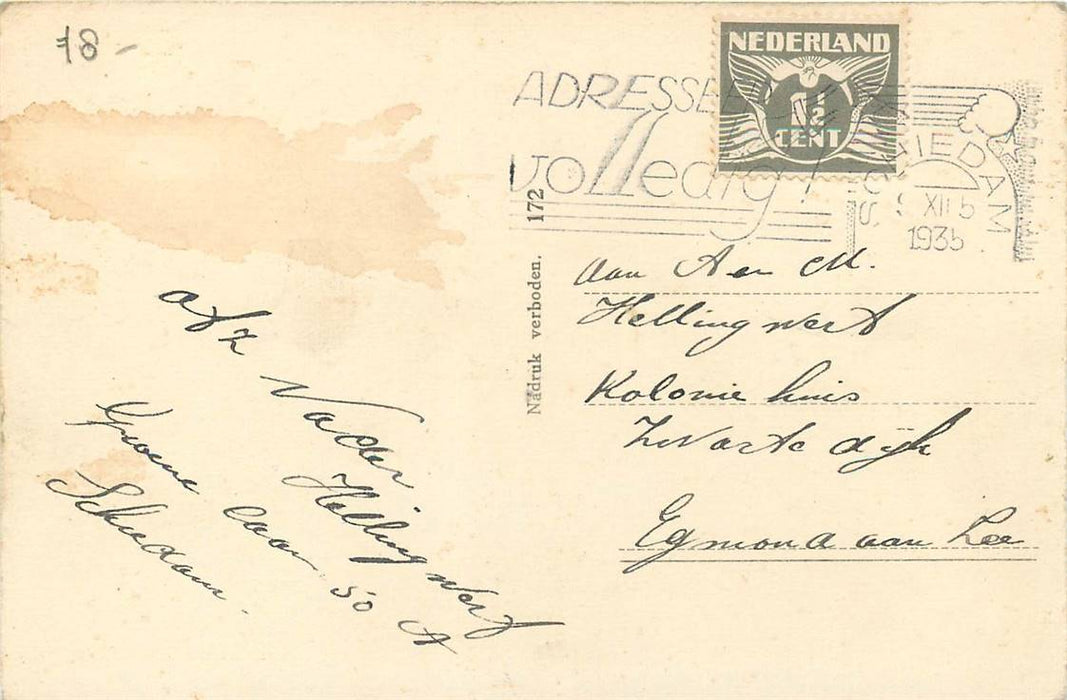 78 -
NEDERLAND
1½
CENT
ADRESSEER
volledig!
SCHIEDAM
XII 5
1935
Aan A en M.
Hellingwerf
Kolonie huis
Zwarte dijk
Egmond aan Zee
Nadruk verboden. 172
afz Vader
Hellingwerf
Groene laan 50 A
Schiedam.